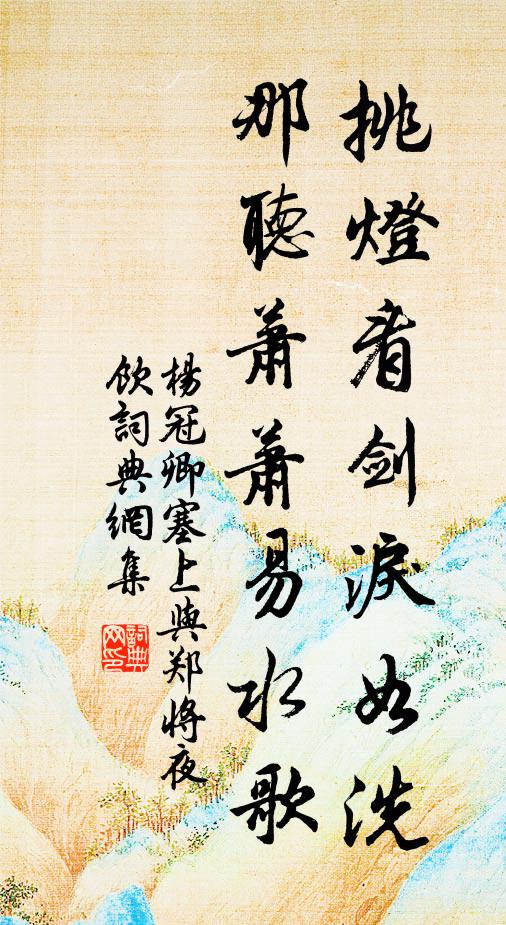 挑燈看剑淚如洗
那聽蕭蕭易水歌
楊冠卿塞上與郑將夜
飲詞典網集
詞典